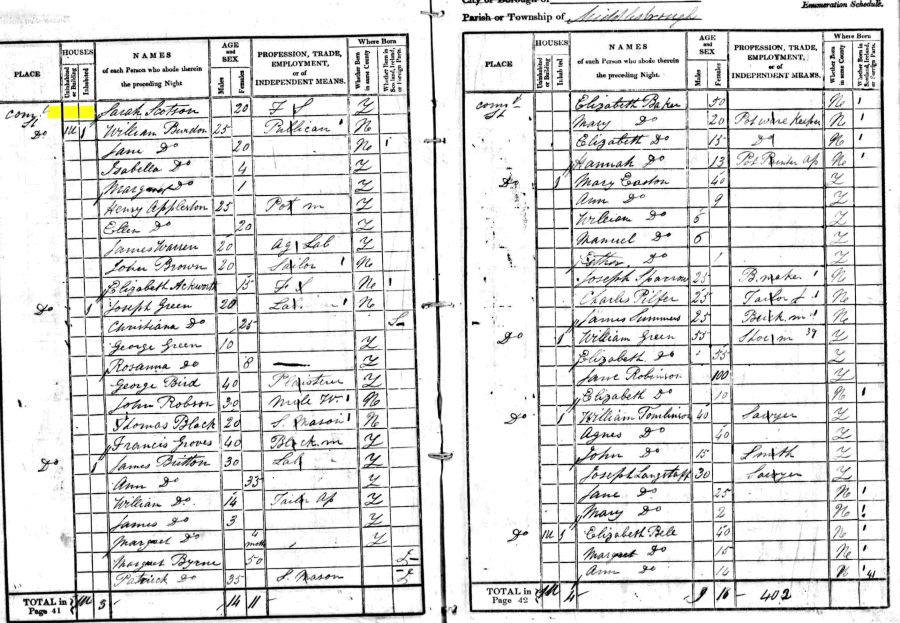 City or Borough of
Parish or Township of Middlesbrough
Enumeration Schedule.
PLACE
HOUSES
Uninhabited or Building
Inhabited
NAMES
of each Person who abode therein the preceding Night.
AGE and SEX
Males
Females
PROFESSION, TRADE, EMPLOYMENT, or of INDEPENDENT MEANS.
Where Born
Whether Born in same County
Whether Born in Scotland, Ireland, or Foreign Parts.
Sarah 20 F S Y
Do 1 William Burdon 25 Publican N
Jane Do 20 N
Isabella Do 4 Y
Margaret Do 1 Y
Henry Appleston 25 Pot m Y
Ellen Do 20 Y
James Warren 20 Ag Lab Y
John Brown 20 Sailor N
Elizabeth Ackworth 15 F S N
Do 1 Joseph Green 20 Lab N
Christiana Do 25
George Green 10 Y
Rosanna Do 8 Y
George Bird 40 Plaisterer Y
John Robson 30 N
Thomas Black 20 S. Mason N
Francis Groves 40 Y
Do 1 James Britton 30 Lab Y
Ann Do 35 Y
William Do 14 Tailor Ap Y
James Do 3 Y
Margret Do 4 Y
Margret Byrne 50
Patrick Do 35 S. Mason
TOTAL in Page 41 3 14 11
PLACE
HOUSES
Uninhabited or Building
Inhabited
NAMES
of each Person who abode therein the preceding Night.
AGE and SEX
Males
Females
PROFESSION, TRADE, EMPLOYMENT, or of INDEPENDENT MEANS.
Where Born
Whether Born in same County
Whether Born in Scotland, Ireland, or Foreign Parts.
Elizabeth Baker 50 N
Mary Do 20 Potware Keeper N
Elizabeth Do 15 Do N
Hannah Do 13 Pot Painter Ap N
Do 1 Mary Easton 40 Y
Ann Do 9 Y
William Do 6 Y
Manuel Do 6 Y
Do 1 Y
Joseph Sparrow 25 B. maker N
Charles 25 Tailor N
James Summers 25 Brick. m N
Do 1 William Green 55 Shoe m 39 Y
Elizabeth Do 55 Y
Jane Robinson 100 Y
Elizabeth Do 10 N
Do 1 William Tomlinson 40 Sawyer Y
Agnes Do 40 Y
John Do 15 Smith Y
Joseph Langstaff 30 Sawyer Y
Jane Do 25 N
Mary Do 2 N
Do 1 Elizabeth Bele 40 N
Margret Do 15 N
Ann Do N 41
TOTAL in Page 42 4 9 16 402